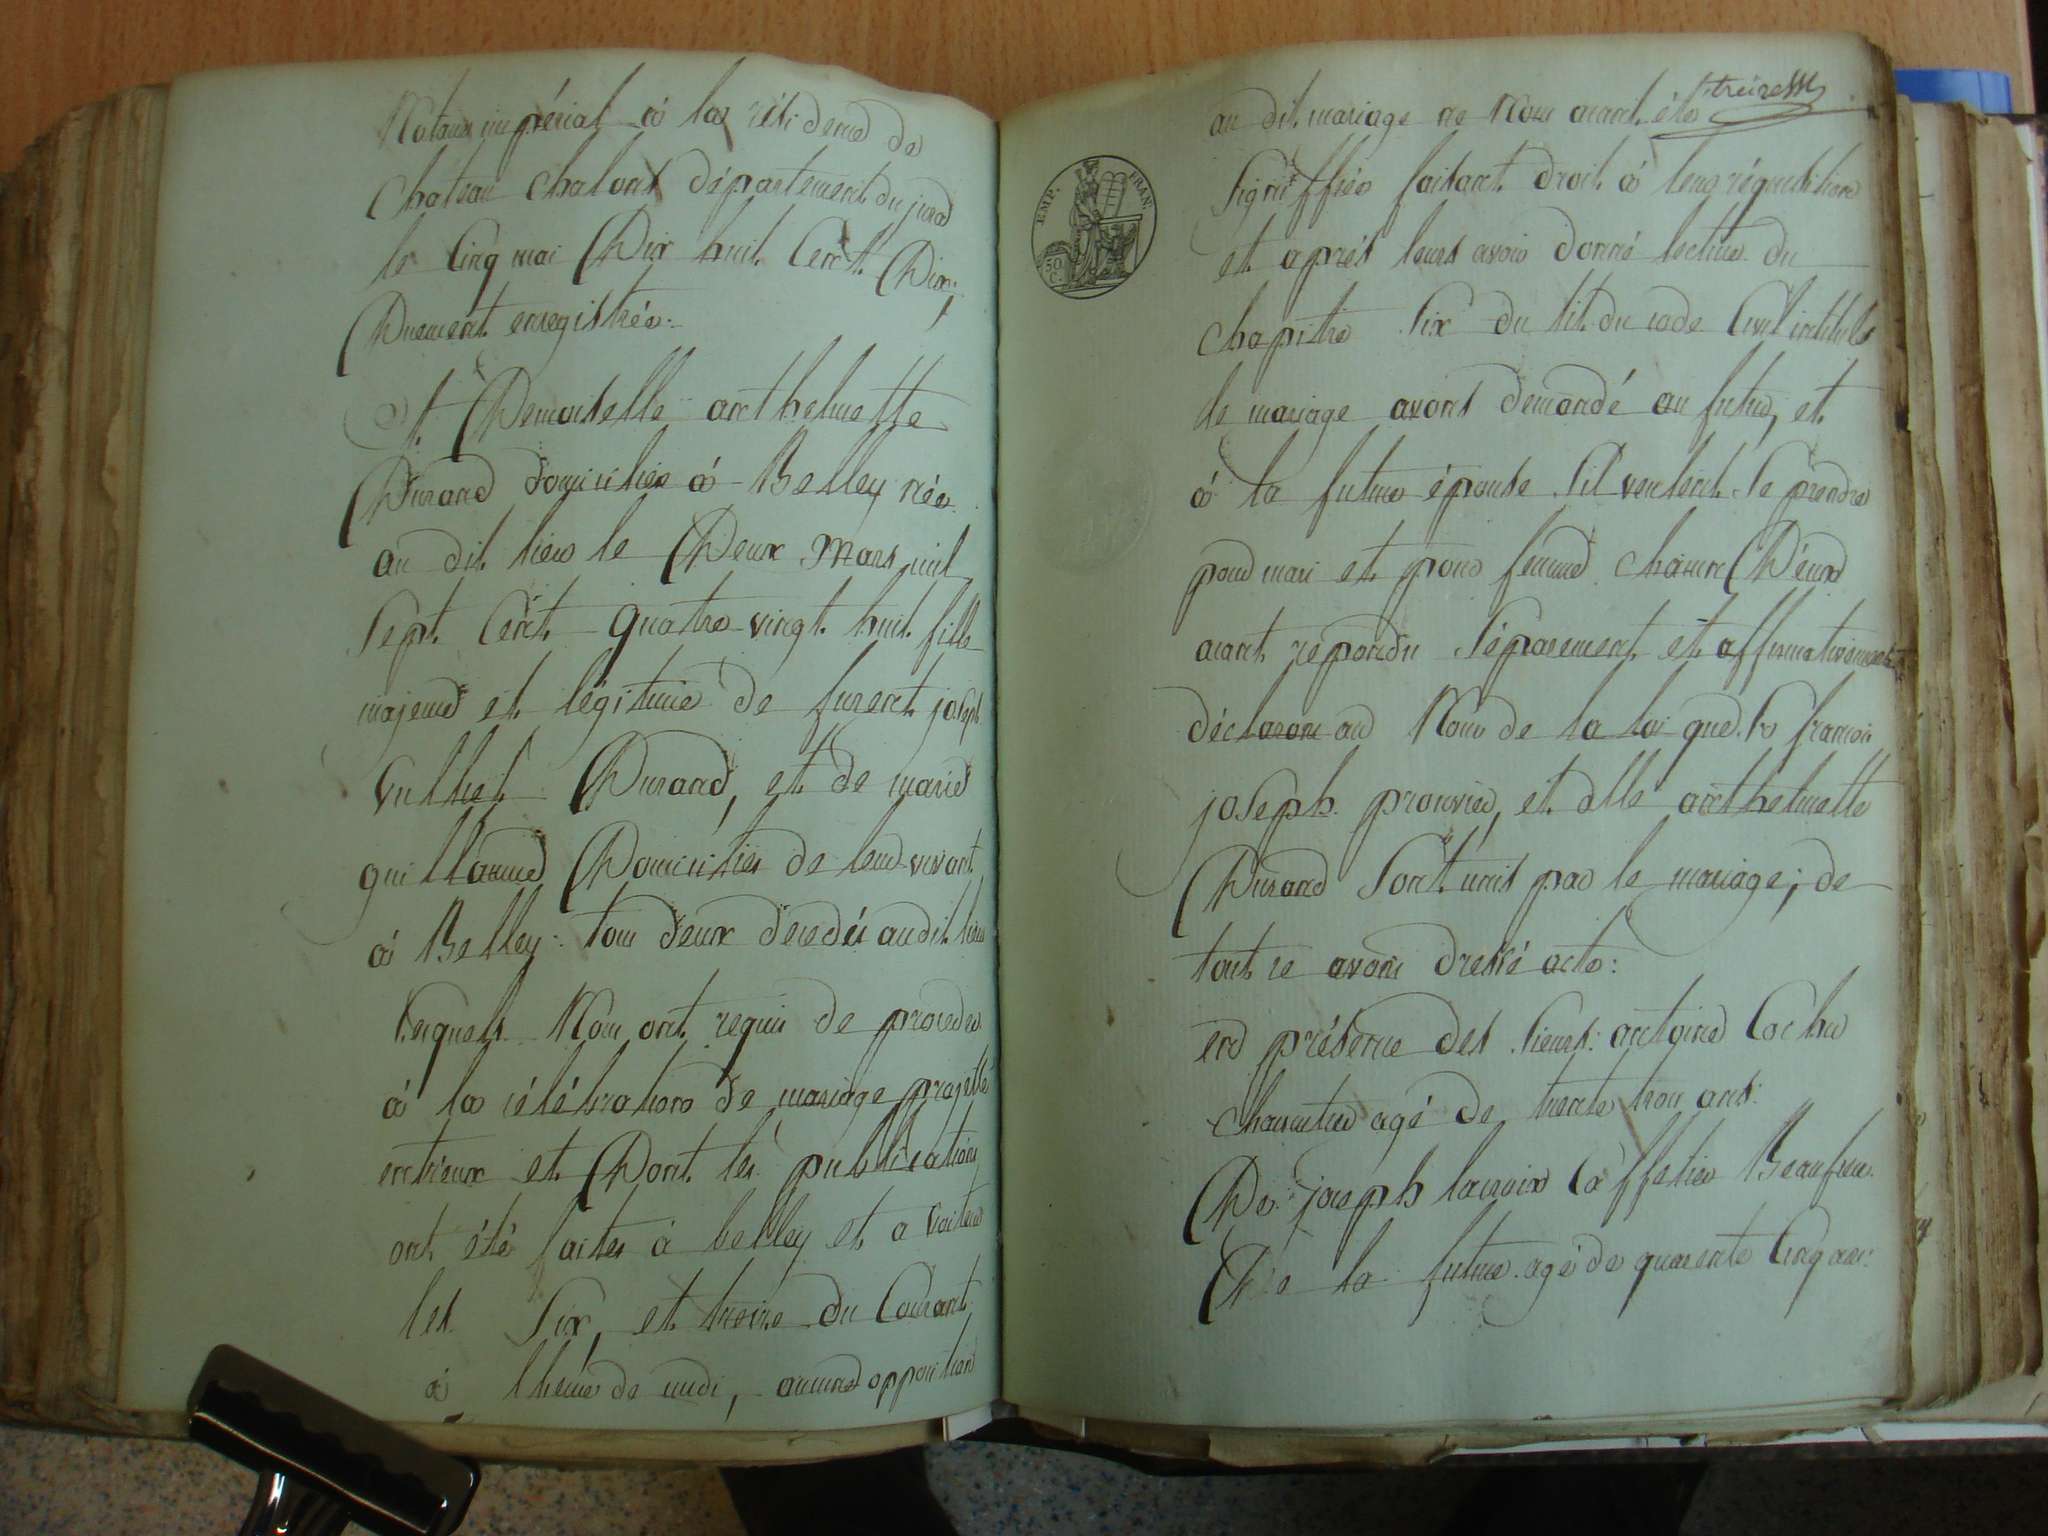 Notaire impérial à la résidence de
chateau chalons département du jura
le Cinq mai Dix huit Cent Dix
Duement enregistrée.
Et Demoiselle anthelmette
Durand domiciliée à Belley née
au dit lieu le Deux Mars mil
Sept Cent quatre vingt huit fille
majeure et légitime de furent joseph
vulliet Durand, et de marie
guillaume Domiciliés de leur vivant
à Belley tous deux decedés au dit lieu
Lesquels Nous ont requis de proceder
à la célébration de mariage projetté
entr'eux et Dont les publications
ont été faites à belley et a
les Six, et treize du Courant
à lheure de midi, aucune opposition
treizesse
au dit mariage ne Nous aiant été
Signiffiée faisant droit à leur réquisition
EMP. FRAN.
50 C.
et après leurs avoir donné lecture du
chapitre Six du tit. du code Civil intitulé
de mariage avons demandé au futur, et
à la future épouse S'il veulent Se prendre
pour mari et pour femme chacun D'eux
aiant répondu Séparement et affirmativement
déclarons au Nom de la loi que Sr francois
joseph prouvier, et dlle anthelmette
Durand Sont unis par le mariage; de
tout ce avons dressé acte:
en présence des Sieurs antoine Cochu
chacutier agé de trente trois ans.
De joseph lacroix Caffetier Beaufrere
De la future agé de quarente Cinq ans: